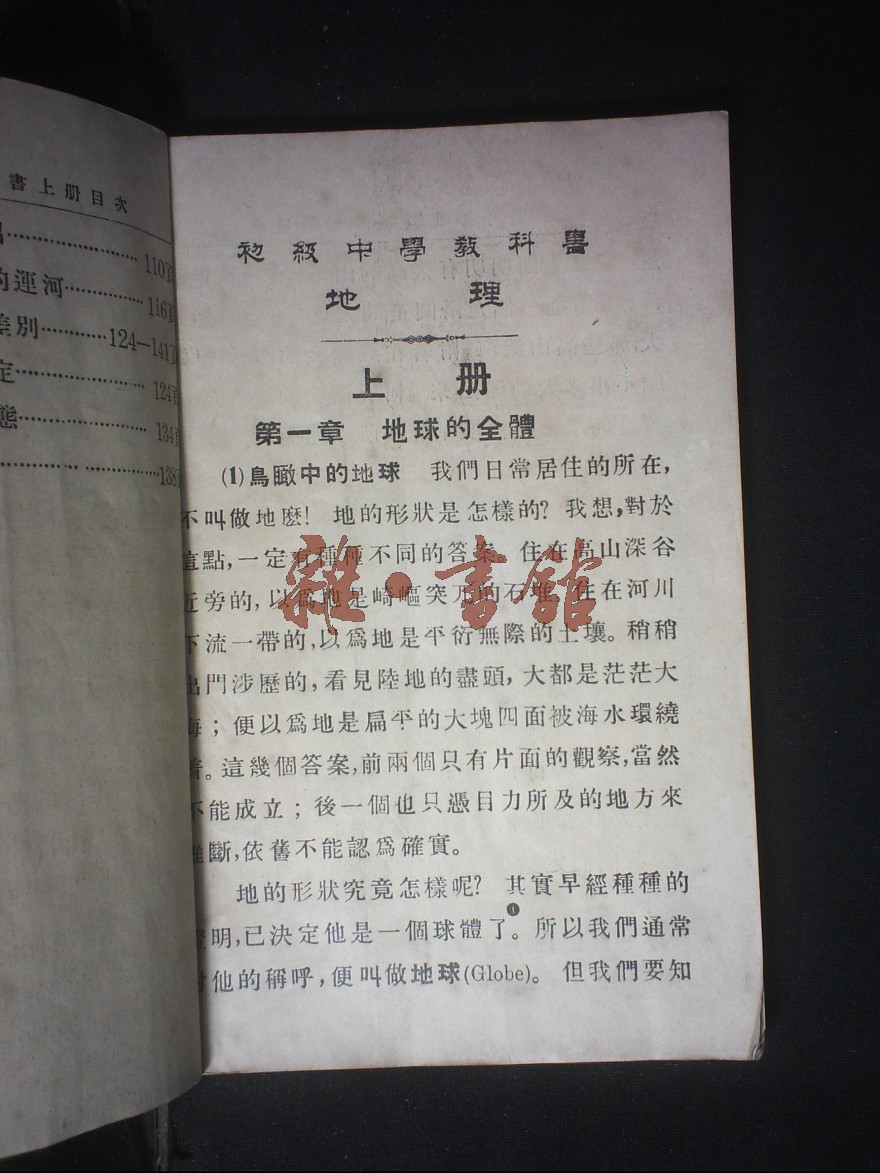 書上冊目次
110頁
的運河 116頁
差別 124—141頁
定 124頁
態 134頁
138頁
初級中學教科書
地理
上冊
第一章 地球的全體
(1)鳥瞰中的地球 我們日常居住的所在,
不叫做地麽! 地的形狀是怎樣的? 我想,對於
這點,一定有種種不同的答案 住在高山深谷
近旁的,以爲地是崎嶇突兀的石堆,住在河川
下流一帶的,以爲地是平衍無際的土壤。稍稍
出門涉歷的,看見陸地的盡頭,大都是茫茫大
海;便以爲地是扁平的大塊四面被海水環繞
着。這幾個答案,前兩個只有片面的觀察,當然
不能成立;後一個也只憑目力所及的地方來
推斷,依舊不能認爲確實。
地的形狀究竟怎樣呢? 其實早經種種的
證明,已決定他是一個球體了。所以我們通常
對他的稱呼,便叫做地球(Globe)。 但我們要知
雜·書館